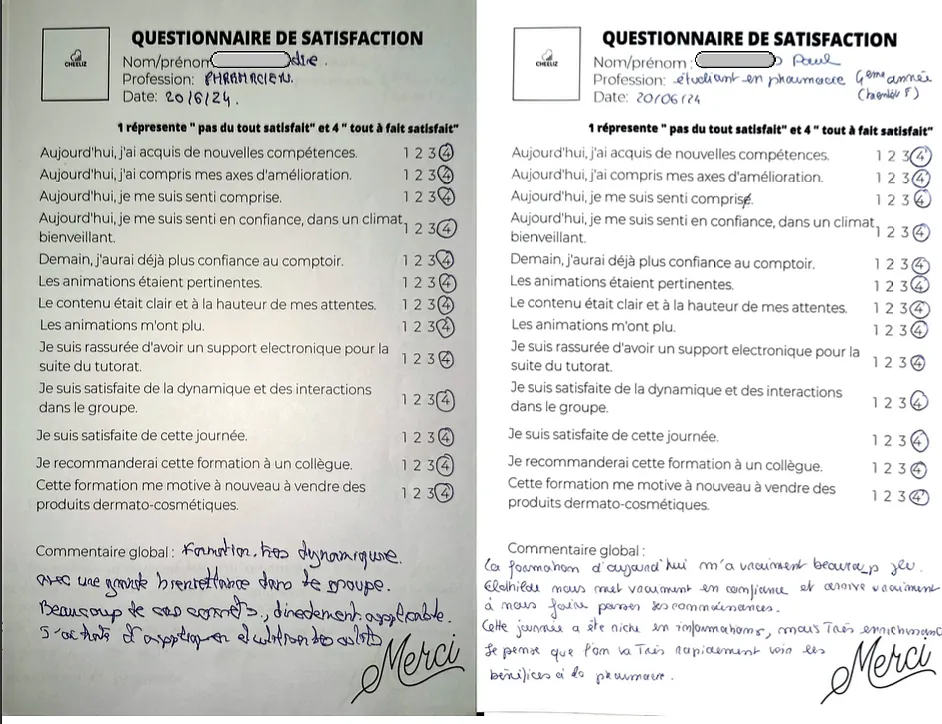 CHEELIZ
QUESTIONNAIRE DE SATISFACTION
Nom/prénom
Profession: PHARMACIEN.
Date: 20/6/24.
1 répresente " pas du tout satisfait" et 4 " tout à fait satisfait"
Aujourd'hui, j'ai acquis de nouvelles compétences. 1 2 3 4
Aujourd'hui, j'ai compris mes axes d'amélioration. 1 2 3 4
Aujourd'hui, je me suis senti comprise. 1 2 3 4
Aujourd'hui, je me suis senti en confiance, dans un climat 1 2 3 4
bienveillant.
Demain, j'aurai déjà plus confiance au comptoir. 1 2 3 4
Les animations étaient pertinentes. 1 2 3 4
Le contenu était clair et à la hauteur de mes attentes. 1 2 3 4
Les animations m'ont plu. 1 2 3 4
Je suis rassurée d'avoir un support electronique pour la 1 2 3 4
suite du tutorat.
Je suis satisfaite de la dynamique et des interactions 1 2 3 4
dans le groupe.
Je suis satisfaite de cette journée. 1 2 3 4
Je recommanderai cette formation à un collègue. 1 2 3 4
Cette formation me motive à nouveau à vendre des 1 2 3 4
produits dermato-cosmétiques.
Commentaire global : Formation très dynamique
avec une grande bienveillance dans le groupe.
Beaucoup de cas concrets, directement applicable.
Merci
CHEELIZ
QUESTIONNAIRE DE SATISFACTION
Nom/prénom : Paul
Profession: étudiant en pharmacie 4eme année
Date: 20/06/24
1 répresente " pas du tout satisfait" et 4 " tout à fait satisfait"
Aujourd'hui, j'ai acquis de nouvelles compétences. 1 2 3 4
Aujourd'hui, j'ai compris mes axes d'amélioration. 1 2 3 4
Aujourd'hui, je me suis senti compris. 1 2 3 4
Aujourd'hui, je me suis senti en confiance, dans un climat 1 2 3 4
bienveillant.
Demain, j'aurai déjà plus confiance au comptoir. 1 2 3 4
Les animations étaient pertinentes. 1 2 3 4
Le contenu était clair et à la hauteur de mes attentes. 1 2 3 4
Les animations m'ont plu. 1 2 3 4
Je suis rassurée d'avoir un support electronique pour la 1 2 3 4
suite du tutorat.
Je suis satisfaite de la dynamique et des interactions 1 2 3 4
dans le groupe.
Je suis satisfaite de cette journée. 1 2 3 4
Je recommanderai cette formation à un collègue. 1 2 3 4
Cette formation me motive à nouveau à vendre des 1 2 3 4
produits dermato-cosmétiques.
Commentaire global :
La formation d'aujourd'hui m'a vraiment beaucoup plu.
Clothilde nous met vraiment en confiance et arrive vraiment
à nous faire passer ses connaissances.
Cette journée a été riche en informations, mais très enrichissant
Je pense que l'on va très rapidement voir les
bénéfices à la pharmacie.
Merci